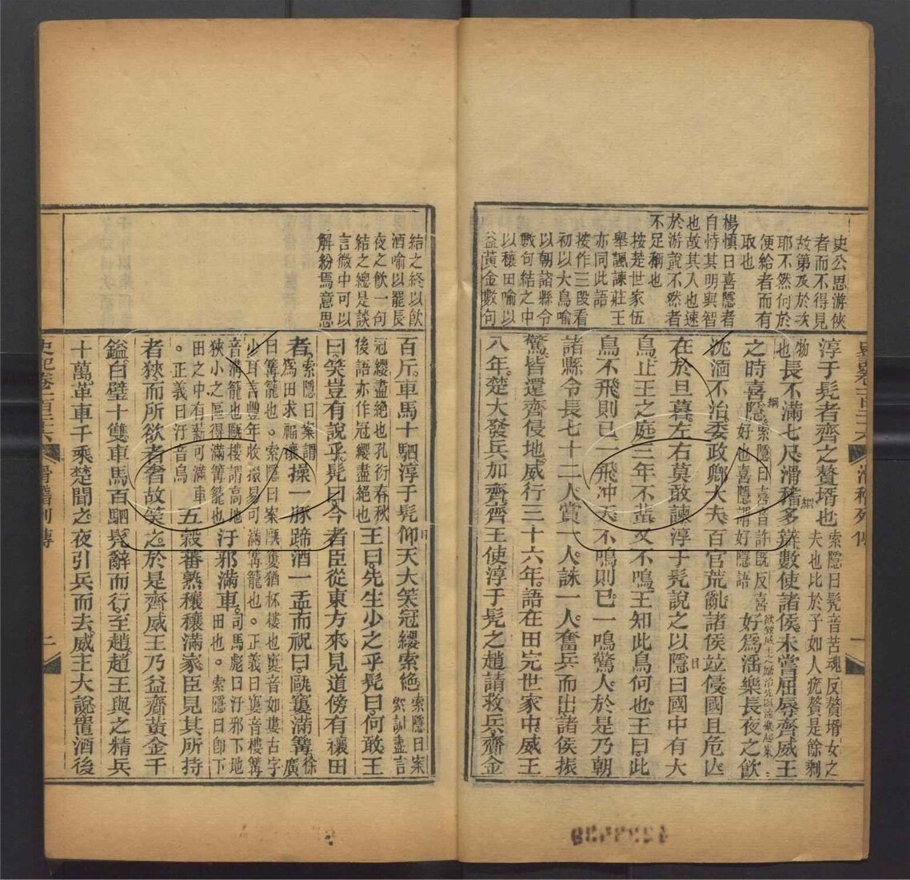 史公思游俠
者而不得見
故第及於次
耶不然何於
便給者而有
取也
楊慎曰喜隱者
自恃其明與智
也故其人也速
於游說不然者
不足稱也
按是世家伍
舉諷諫莊王
亦同此語
按作三段看
初以大鳥喻
以朝諸縣令
數句結之中
以穰田喻以
益黃金數句
淳于髡者齊之贅壻也索隱曰髡音苦魂反贅壻女之夫也比於子如人疣贅是餘剩
物也長不滿七尺滑稽多辯數使諸侯未嘗屈辱齊威王
之時喜隱索隱曰喜音許旣反喜好也喜隱謂好隱語好爲淫樂長夜之飲
沈湎不治委政卿大夫百官荒亂諸侯竝侵國且危亾
在於旦暮左右莫敢諫淳于髡說之以隱曰國中有大
鳥止王之庭三年不蜚又不鳴王知此鳥何也王曰此
鳥不飛則已一飛冲天不鳴則已一鳴驚人於是乃朝
諸縣令長七十二人賞一人誅一人奮兵而出諸侯振
驚皆還齊侵地威行三十六年語在田完世家中威王
八年楚大發兵加齊齊王使淳于髡之趙請救兵齎金
史記卷一百二十六
滑稽列傳
一
結之終以飲
酒喻以罷長
夜之飲一句
結之總是談
言微中可以
解紛焉意思
百斤車馬十駟淳于髡仰天大笑冠纓索絕索隱曰案索訓盡言
冠纓盡絕也孔衍春秋後語亦作冠纓盡絕也王曰先生少之乎髡曰何敢王
曰笑豈有說乎髡曰今者臣從東方來見道傍有禳田
者索隱曰案謂爲田求福禳操一豚蹄酒一盂而祝曰甌窶滿篝徐廣
曰篝籠也。索隱曰案甌窶猶杯樓也窶音如婁古字少耳言豐年收掇易可滿篝籠也。正義曰窶音樓篝
音溝籠也甌樓謂高地狹小之區得滿篝籠也汙邪滿車司馬彪曰汙邪下地田也。索隱曰卽下
田之中有薪可滿車。正義曰汙音烏五穀蕃熟穰穰滿家臣見其所持
者狹而所欲者奢故笑之於是齊威王乃益齎黃金千
鎰白璧十雙車馬百駟髡辭而行至趙趙王與之精兵
十萬革車千乘楚聞之夜引兵而去威王大說置酒後
史記卷一百二十六
滑稽列傳
二